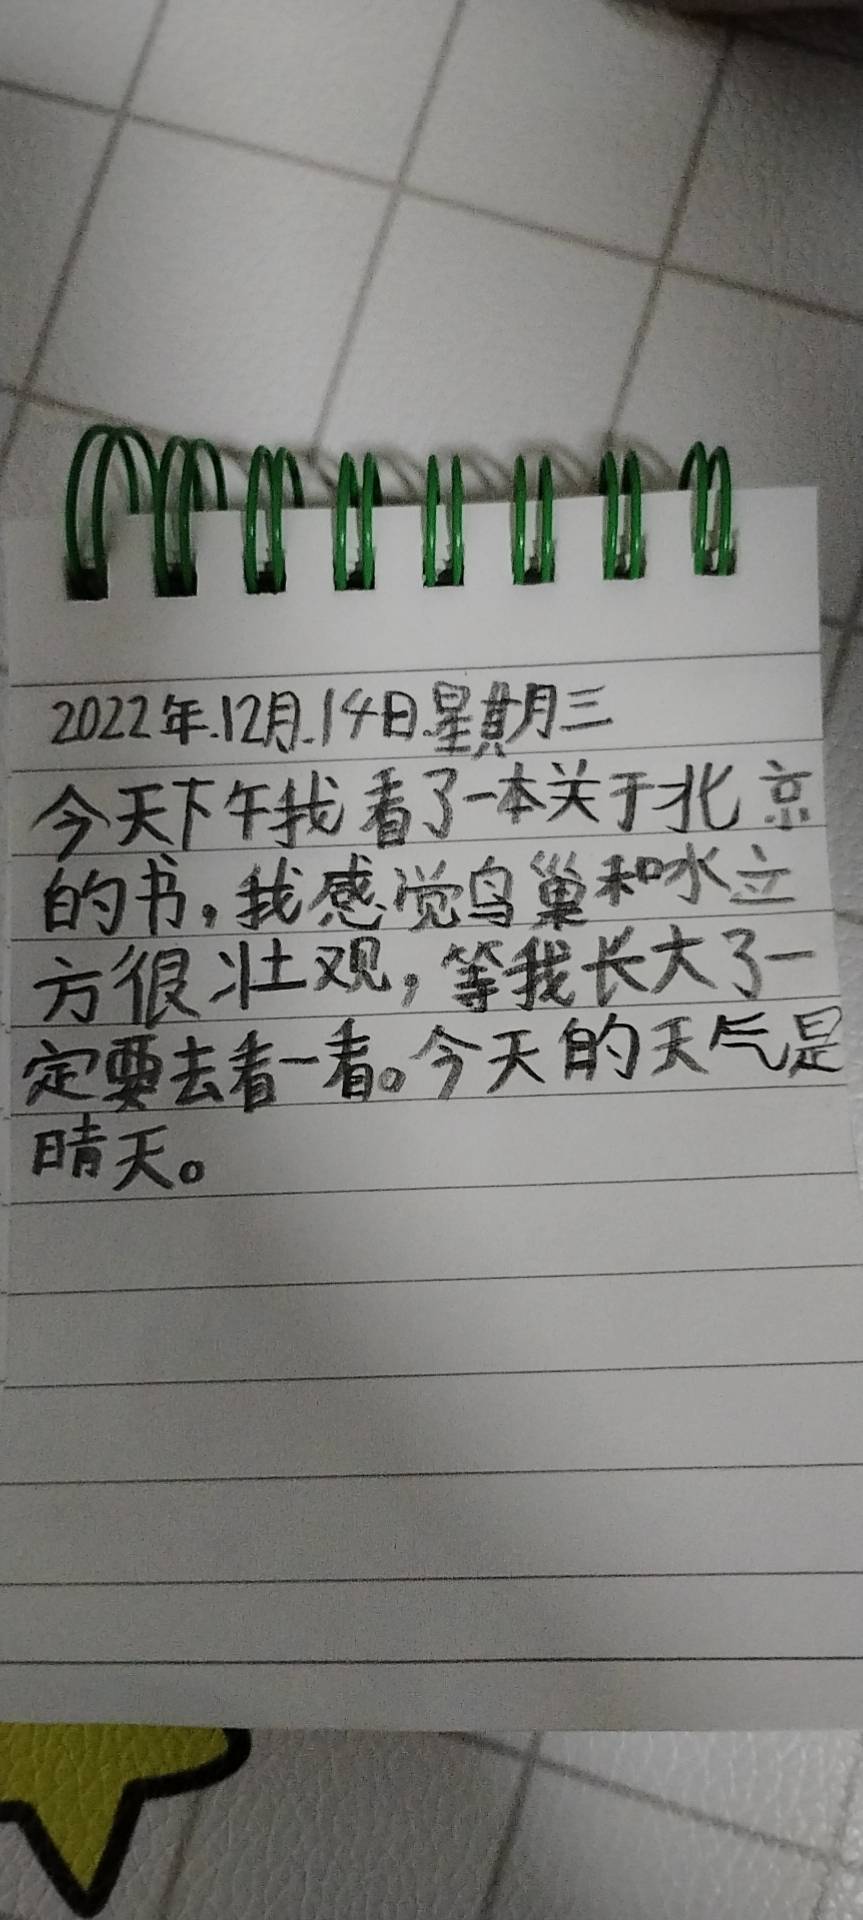 2022年.12月.14日.星期三
今天下午我看了一本关于北京
的书,我感觉鸟巢和水立
方很壮观,等我长大了一
定要去看一看。今天的天气是
晴天。